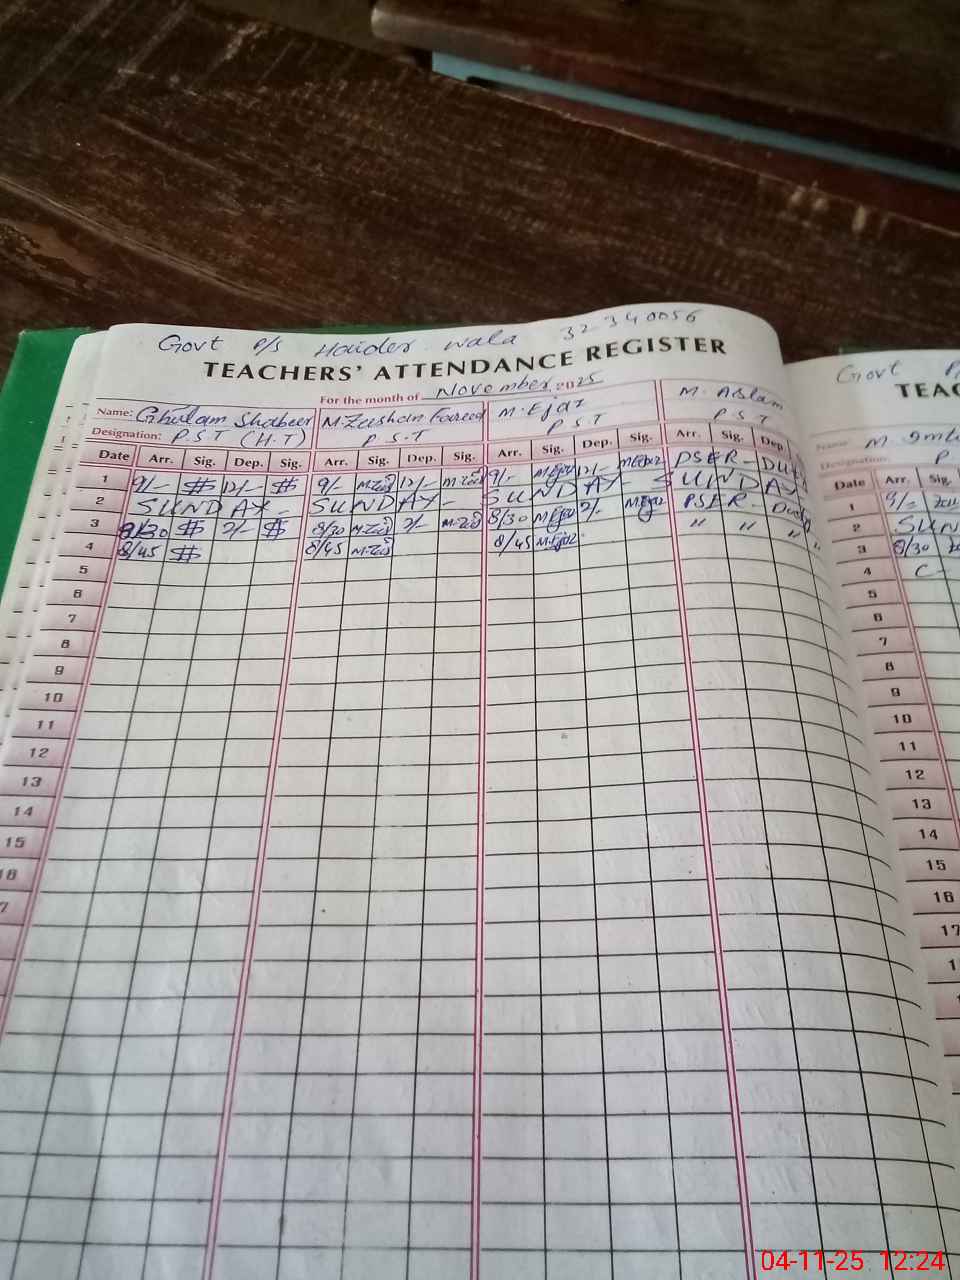 Govt P/S Haider wala 32340056
TEACHERS' ATTENDANCE REGISTER
For the month of November 2025
Name: Ghulam Shabeer M. Zeeshan Fareed M. Ejaz M. Aslam
Designation: P.S.T (H.T) P.S.T P.S.T P.S.T
Date Arr. Sig. Dep. Sig. Arr. Sig. Dep. Sig. Arr. Sig. Dep. Sig. Arr. Sig. Dep
1 9/- 12/- 9/- 12/- 9/- M.Ejaz 12/- M.Ejaz PSER - Duty
2 SUNDAY - SUNDAY - SUNDAY SUNDAY
3 8/30 2/- 8/30 2/- 8/30 M.Ejaz 2/- M.Ejaz PSER - Duty
4 8/45 8/45 8/45 M.Ejaz " " " "
5
6
7
8
9
10
11
12
13
14
15
16
7
Govt P
TEAC
Name: M.
Designation: P
Date Arr. Sig.
1 9/-
2 SUN
3 8/30
4 C
5
6
7
8
9
10
11
12
13
14
15
16
17
1
1
04-11-25 12:24